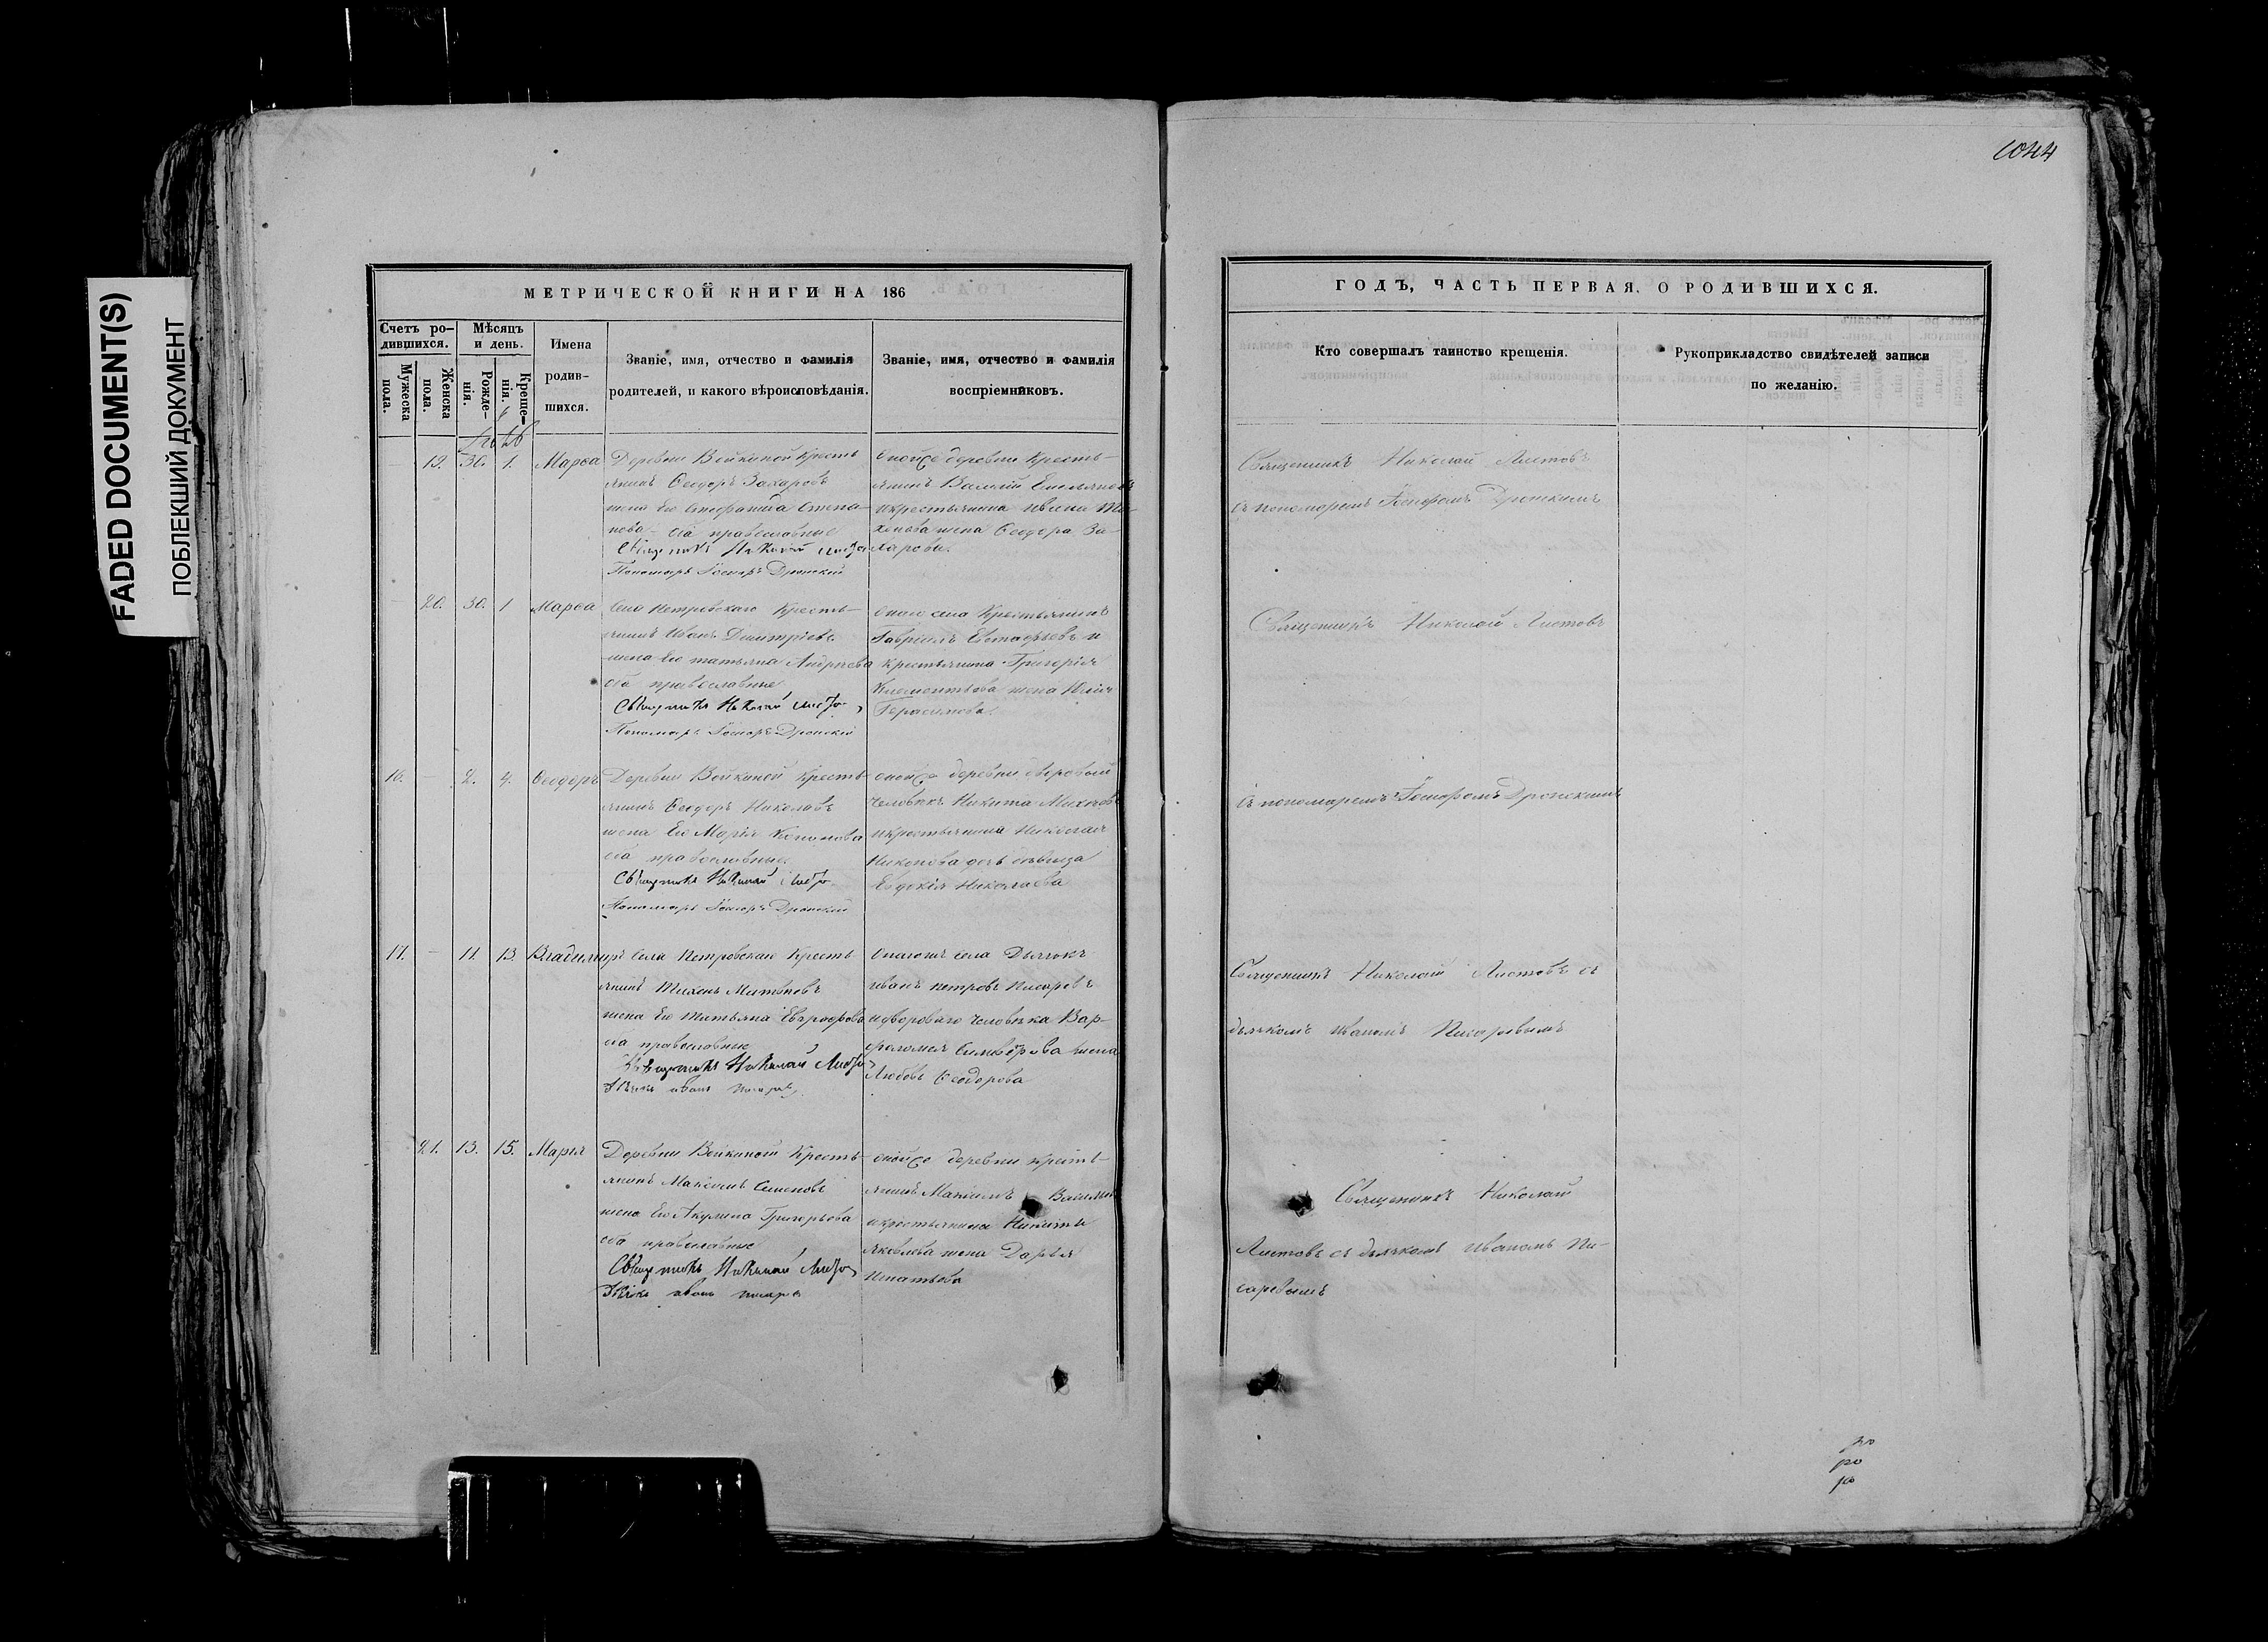 FADED DOCUMENT(S)
ПОБЛЕКШИЙ ДОКУМЕНТ
1044
МЕТРИЧЕСКОЙ КНИГИ НА 186
Счетъ ро-
дившихся.
Мѣсяцъ
и день.
Мужеска
пола.
Женска
пола.
Рожде-
нія.
Креще-
нія.
Имена
родив-
шихся.
Званіе, имя, отчество и фамилія
родителей, и какого вѣроисповѣданія.
Званіе, имя, отчество и фамилія
воспріемниковъ.
19. 30. 1. Марѳа
Деревни Войкиной Кресть
янинъ Ѳеодоръ Захаровъ
жена Его Стефанида Степа-
нова оба православные
Священникъ Николай Листовъ
Пономарь Іосифъ Дронскій
оной же деревни Кресть-
янинъ Василій Емельяновъ
икрестьянина
жена Ѳеодора За-
харова.
20. 30. 1 Марѳа
Села Петровскаго Кресть-
янинъ Иванъ Димитріевъ
жена Его татьяна Андреева
оба православные
Священникъ Николай Листовъ
Пономарь Іосифъ Дронскій
онаго села Крестьянинъ
Гавріилъ Евстафьевъ и
крестьянина Григорія
Климентьева жена
Герасимова.
16. - 2. 4. Ѳеодоръ
Деревни Войкиной Кресть
янинъ Ѳеодоръ Николаевъ
жена Его Марія Кононова
оба православные.
Священникъ Николай Листовъ
Пономарь Іосифъ Дронскій
оной же деревни дворовый
человѣкъ Никита
икрестьянина Николая
дочь дѣвица
Евдокія Николаева
17. - 11. 13. Владимиръ
Села Петровскаго Кресть
янинъ Тихонъ
жена Его Татьяна Евграфова
оба православные
Священникъ Николай Листовъ
Дьячокъ иванъ писаревъ
Онагожъ села Дьячокъ
иванъ петровъ Писаревъ
идвороваго человѣка Вар-
фоломея жена
Любовь Ѳеодорова
21. 13. 15. Марія
Деревни Войкиной Кресть-
янинъ Максимъ Семеновъ
жена Его Акулина Григорьева
оба православные
Священникъ Николай Листовъ
Дьячокъ иванъ писаревъ
оной же деревни кресть-
янинъ Максимъ
икрестьянина Никиты
яковлева жена Дарья
Игнатьева
ГОДЪ, ЧАСТЬ ПЕРВАЯ, О РОДИВШИХСЯ.
Кто совершалъ таинство крещенія.
Рукоприкладство свидѣтелей записи
по желанію.
Священникъ Николай Листовъ
съ пономаремъ Іосифомъ Дронскимъ
Священникъ Николай Листовъ
съ пономаремъ Іосифомъ Дронскимъ
Священникъ Николай Листовъ съ
дьячкомъ иваномъ Писаревымъ
Священникъ Николай
Листовъ съ дьячкомъ иваномъ Пи-
саревымъ